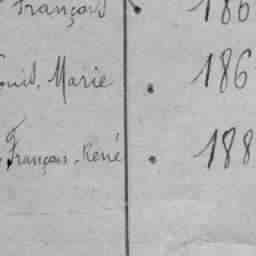 François 186
Louis, Marie . 186
François, René . 188